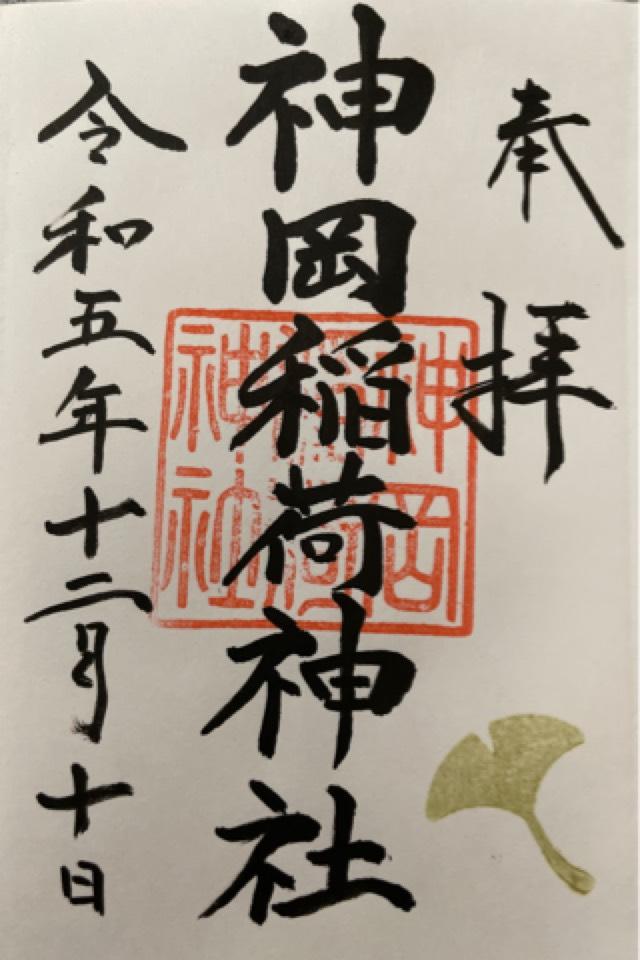 奉拝
神岡稲荷神社
神岡稲荷神社
令和五年十二月十日